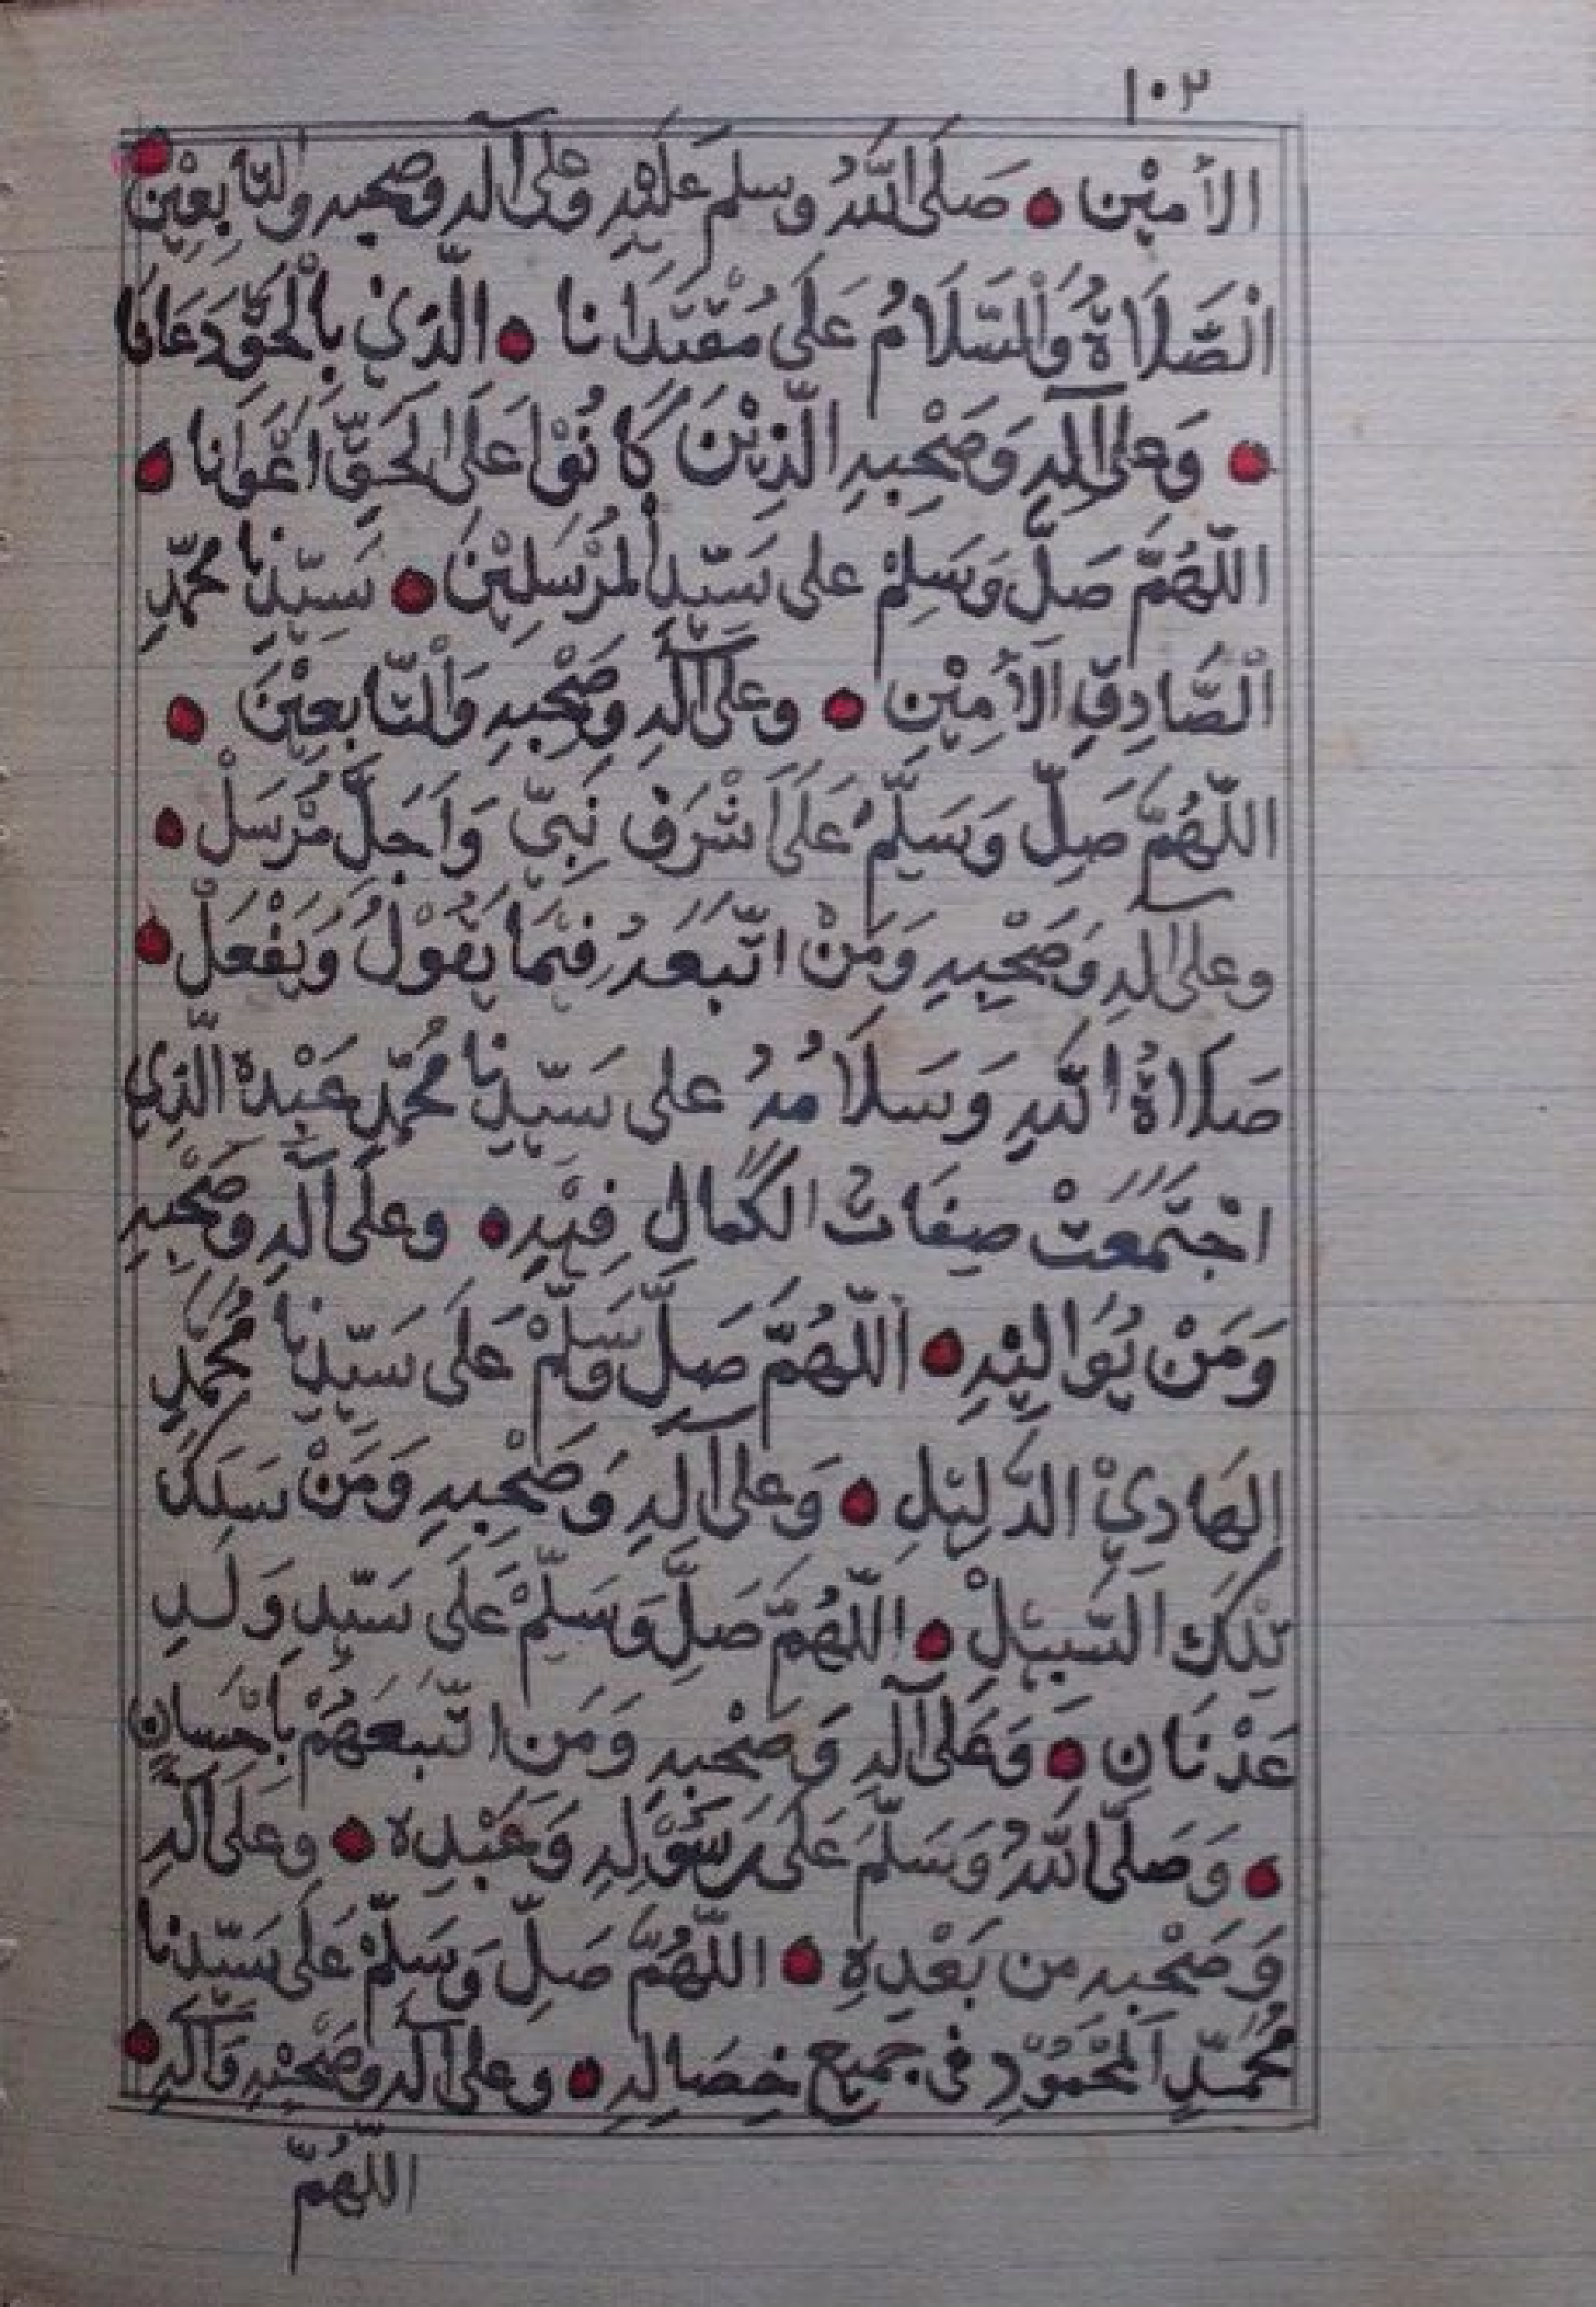 ١٠٢
الأمِيْن • صَلَى اللهُ وسلم عَلَيْهِ وعلى آله وصحبه والتابِعِيْن •
الصَّلَاةُ وَالسَّلَامُ عَلَى مُقْتَدَانا • الَّذِيْ بِالْحَقِّ دَعَانَا
• وَعلى آلِهِ وَصَحْبِهِ الَّذِيْنَ كَانُوْا عَلَى الحَقِّ اَعْوَانا •
اللّهُمَّ صَلِّ وَسَلِّمْ على سَيِّدِ الْمُرْسَلِيْنَ • سَيِّدِنا محمّدٍ
الصَّادِقِ الأَمِيْن • وعلى آلِهِ وصَحْبِهِ وَالتَّابِعِيْنَ •
اللّهُمَّ صَلِّ وَسَلِّمْ عَلَى اَشْرَفِ نَبِيّ وَاَجَلِّ مُرْسَلْ •
وعلى آلِهِ وَصَحْبِهِ وَمَنْ اتَّبَعَهُ فِيْمَا يَقُوْلُ وَيَفْعَلْ •
صَلَاةُ اللهِ وَسَلَامُهُ على سَيِّدِنَا مُحَمَّدٍ عَبْدِهِ الَّذِي
اجْتَمَعَتْ صِفَاتُ الكَمَالِ فِيْهِ • وعلى آلِهِ وَصَحْبِهِ
وَمَنْ يُوَالِيْهِ • اَللّهُمَّ صَلِّ وَسَلِّمْ عَلَى سَيِّدِنَا مُحَمَّدٍ
الهَادِيْ الدَّلِيْلِ • وَعلى آلِهِ وَصَحْبِهِ وَمَنْ سَلَكَ
تِلْكَ السَّبِيْلْ • اللّهُمَّ صَلِّ وَسَلِّمْ عَلَى سَيِّدِ وَلَدِ
عَدْنَانِ • وَعَلى آلِهِ وَصَحْبِهِ وَمَن اتَّبَعَهُمْ بِاِحْسَانٍ
• وَصَلَّى اللهُ وَسَلَّمَ عَلَى رَسُوْلِهِ وَعَبْدِهِ • وعَلى آلِهِ
وَصَحْبِهِ من بَعْدِهِ • اللّهُمَّ صَلِّ وَسَلِّمْ عَلَى سَيِّدنا
مُحَمَّدٍ اَلمَحْمُوْدِ فى جميع خِصَالِهِ • وعلى آله وصَحْبِهِ وَآلِهِ •
اللّهُمّ